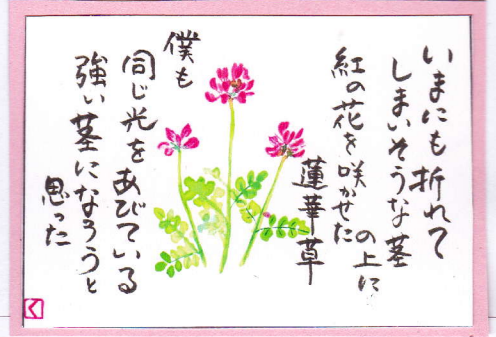 いまにも折れて
しまいそうな茎
の上に
紅の花を咲かせた
蓮華草
僕も
同じ光をあびている
強い茎になろうと
思った
く